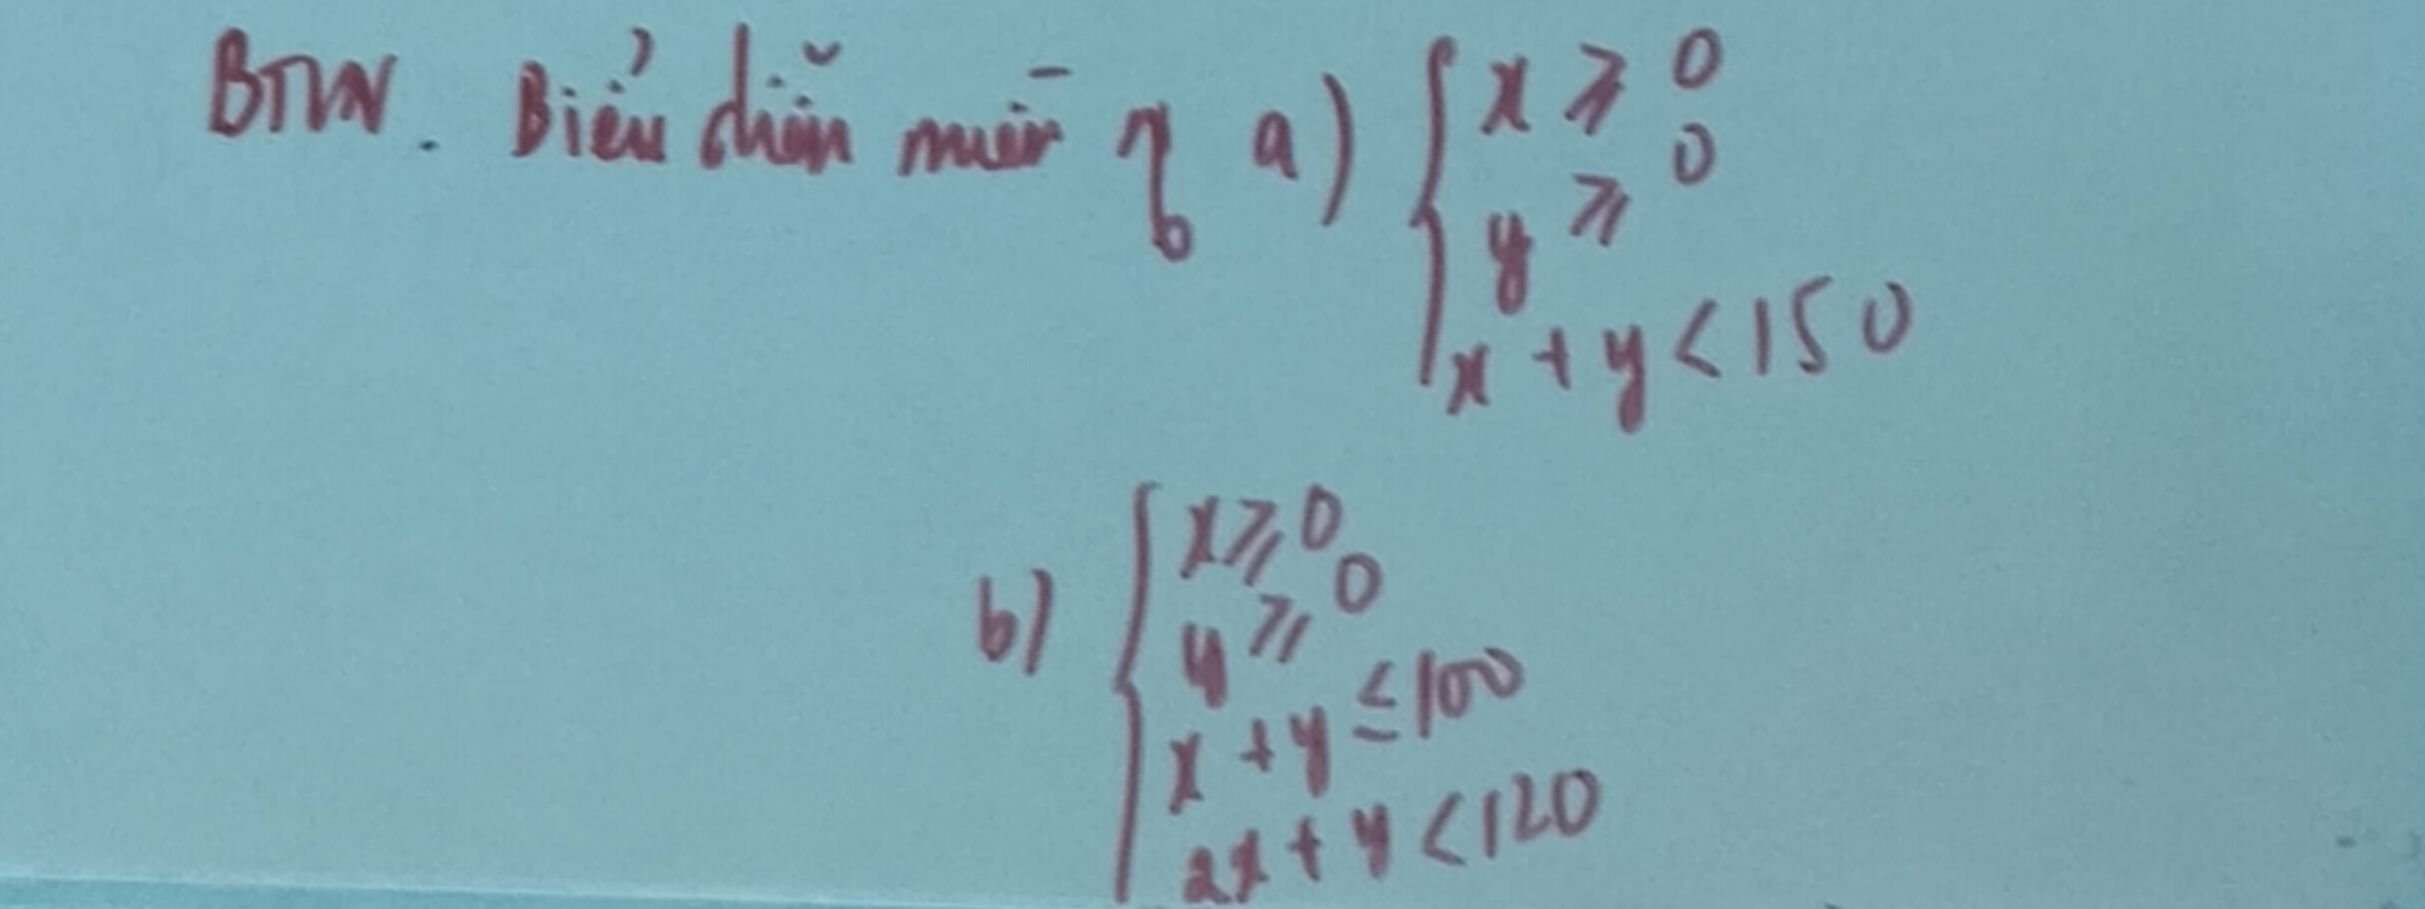 BTVN. Biểu diễn miền η₀ a) { x ⩾ 0
y ⩾ 0
x + y < 150
b) { x ⩾ 0
y ⩾ 0
x + y ≤ 100
2x + y < 120